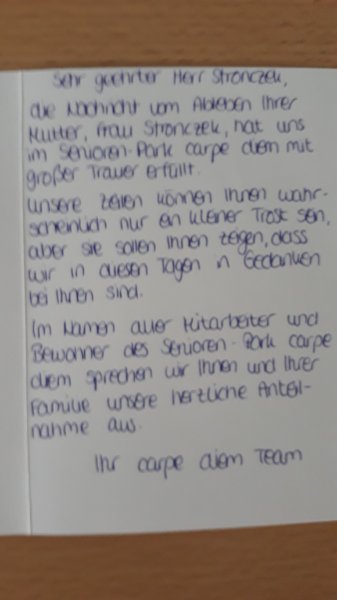 Sehr geehrter Herr Stronczek,
die Nachricht vom Ableben Ihrer
Mutter, Frau Stronczek, hat uns
im Senioren-Park carpe diem mit
großer Trauer erfüllt.
Unsere Zeilen können Ihnen wahr-
scheinlich nur ein kleiner Trost sein,
aber sie sollen Ihnen zeigen, dass
wir in diesen Tagen in Gedanken
bei Ihnen sind.
Im Namen aller Mitarbeiter und
Bewohner des Senioren-Park carpe
diem sprechen wir Ihnen und Ihrer
Familie unsere herzliche Anteil-
nahme aus.
Ihr carpe diem Team